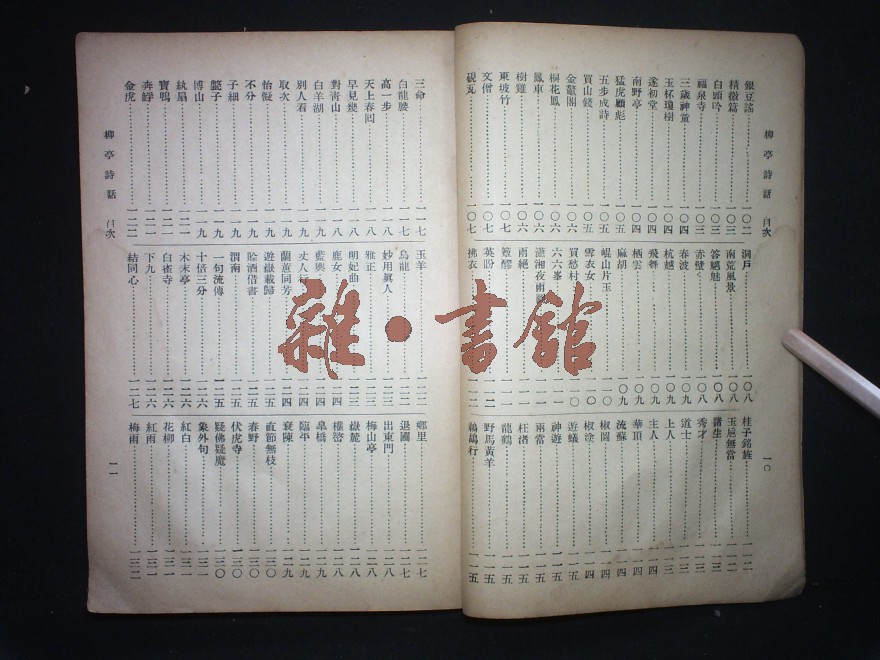 柳亭詩話 目次 一〇
銀豆謠 一〇二
精徵篇 一〇二
白頭吟 一〇三
福泉寺 一〇三
三歲神童 一〇四
玉杯瓊樹 一〇四
遂初堂 一〇四
南野亭 一〇四
猛虎顧彪 一〇五
五步成詩 一〇五
買山錢 一〇五
金鼇閣 一〇六
桐花鳳 一〇六
鳳車 一〇六
樹雞 一〇六
東坡竹 一〇七
文僧 一〇七
硯瓦 一〇七
洞戶 一〇八
南荒風景 一〇八
答魍魅 一〇八
赤壁 一〇八
春波 一〇九
杭越 一〇九
飛舞 一〇九
栖雲 一〇九
麻胡 一〇九
崐山片玉 一一〇
雪衣女 一一〇
買愁村 一一〇
六六峯 一一一
瀟湘夜雨
雨絕
英盼 一一二
拂衣 一一二
桂子銘旌 一一二
玉巵無當 一一二
諸生 一一三
秀才 一一三
道士 一一三
上人 一一三
主人 一一四
華頂 一一四
流蘇 一一四
椒圖 一一四
椒塗 一一四
遊蟻 一一五
神遊 一一五
兩當 一一五
枉渚 一一五
龍鶴 一一五
野馬黃羊 一一五
鷓鴣行 一一五
三命 一一七
白龍腰 一一七
高一步 一一八
天上春囘 一一八
早見幾 一一八
對青山 一一八
白羊湖 一一九
別人看 一一九
取次 一一九
怡儗 一一九
不分 一一九
子細 一一九
懟子 一一九
博山 一一九
紈扇 一二一
寶鴨 一二一
奔䱐 一二一
金虎 一二二
玉羊 一二二
烏龍 一二二
妙用眞人 一二三
雅正 一二三
明妃曲 一二三
鹿女 一二四
藍輿 一二四
丈人行 一二四
蘭蕙同芳 一二四
遊嶽載歸 一二五
賒酒借書 一二五
渭南 一二五
一句流傳 一二五
十倍三分 一二六
木末亭 一二六
白雀寺 一二六
下九 一二六
結同心 一二七
鄉里 一二七
退圃 一二七
出東門 一二八
梅山亭 一二八
嶽麓 一二八
櫂謌 一二八
皋橋 一二九
臨平 一二九
衰陳 一二九
直節無枝 一三〇
春野 一三〇
伏虎寺 一三〇
疑佛疑魔 一三〇
象外句 一三一
紅白 一三一
花柳 一三一
紅雨 一三一
梅雨 一三二
柳亭詩話 目次 一一
雜·書館